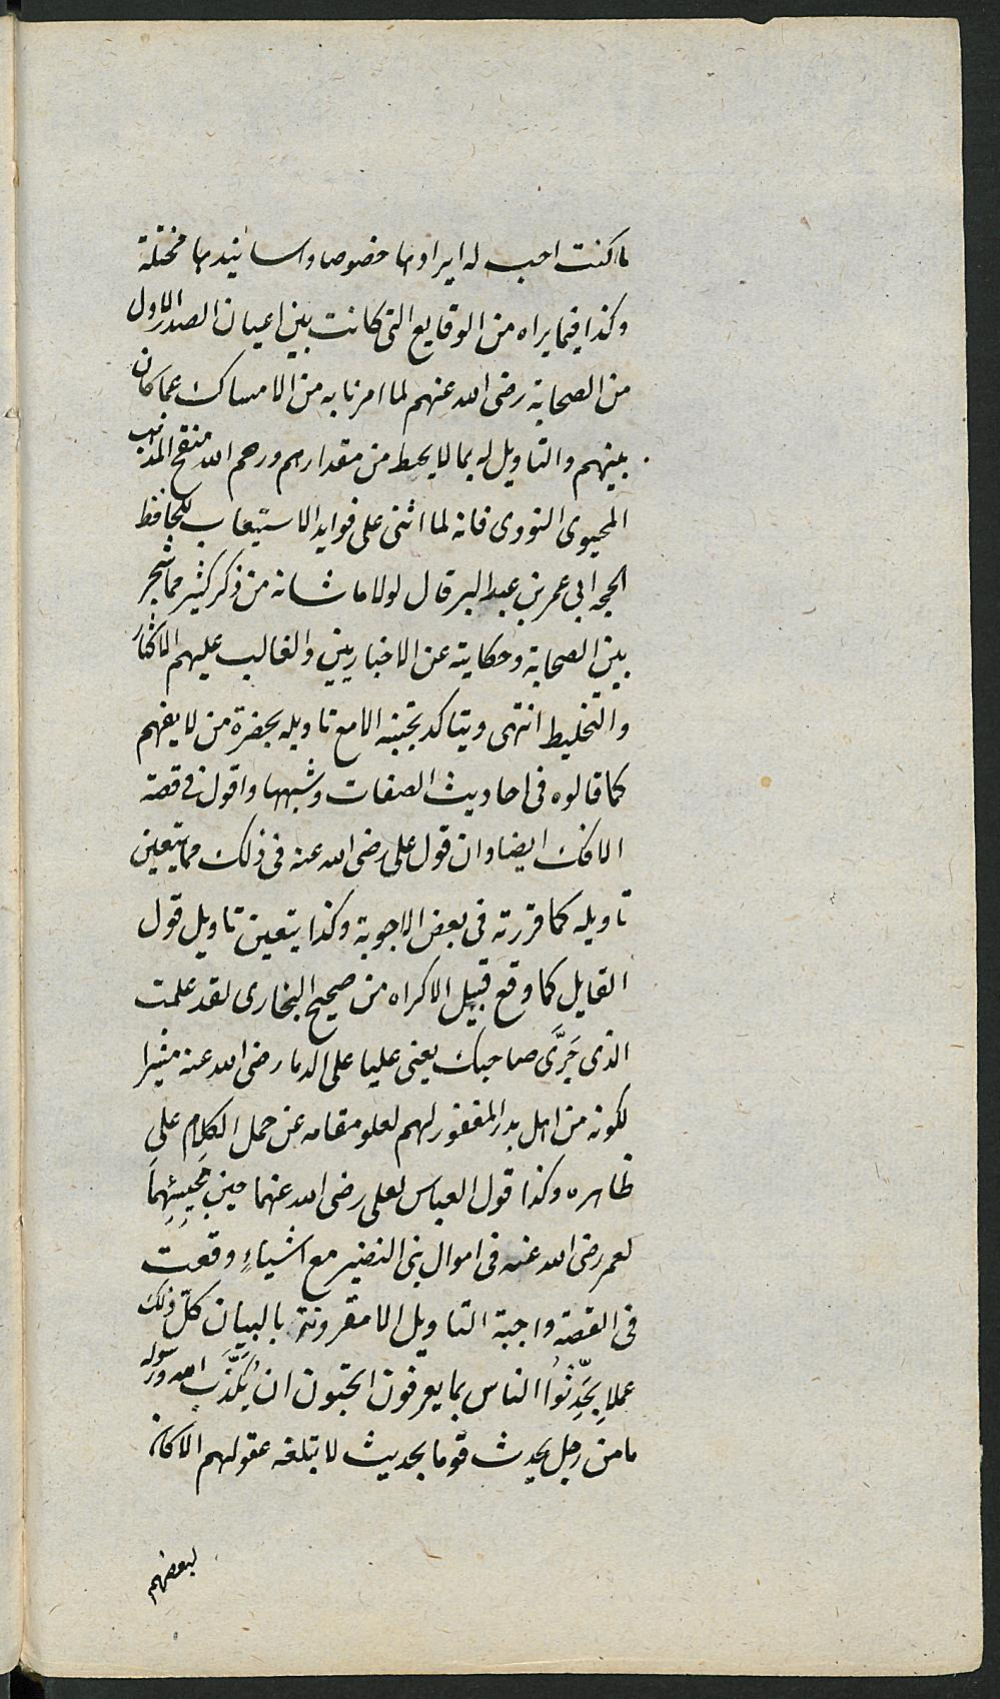 ما كنت احب له ايرادها خصوصا واسانيدها مختلة
وكذا فيما يراه من الوقايع التى كانت بين اعيان الصدر الاول
من الصحابة رضى الله عنهم لما امرنا به من الامساك عما كان
بينهم والتاويل له بما لا يحط من مقدارهم ورحم الله منقح المذهب
المحيوى النووى فانه لما اثنى على فوايد الاستيعاب للحافظ
الحجه ابى عمر بن عبد البر قال لولا ما شانه من ذكر كثير مما شجر
بين الصحابة وحكايته عن الاخباريين والغالب عليهم الاكثار
والتخليط انتهى ويتاكد تجنبه الا مع تاويله بحضرة من لا يفهم
كما قالوه فى احاديث الصفات وشبهها واقول فى قصة
الافك ايضا وان قول على رضى الله عنه فى ذلك مما يتعين
تاويله كما قررته فى بعض الاجوبة وكذا يتعين تاويل قول
القايل كما وقع قبيل الاكراه من صحيح البخارى لقد علمت
الذى جَرَّى صاحبك يعنى عليا على الدما رضى الله عنه مشيرا
لكونه من اهل بدر المغفور لهم لعلو مقامه عن حمل الكلام على
ظاهره وكذا قول العباس لعلى رضى الله عنهما حين مَجِيئِهِمَا
لعمر رضى الله عنه فى اموال بنى النضير مع اشياءٍ وقعت
فى القصة واجبة التاويل الا مقرونة بالبيان كلّ ذلك
عملا بحَدِّثُوا الناس بما يعرفون اتحبون ان يُكَذَّبَ الله ورسوله
ما من رجل يحدث قوما بحديث لا تبلغه عقولهم الا كان
لبعضهم